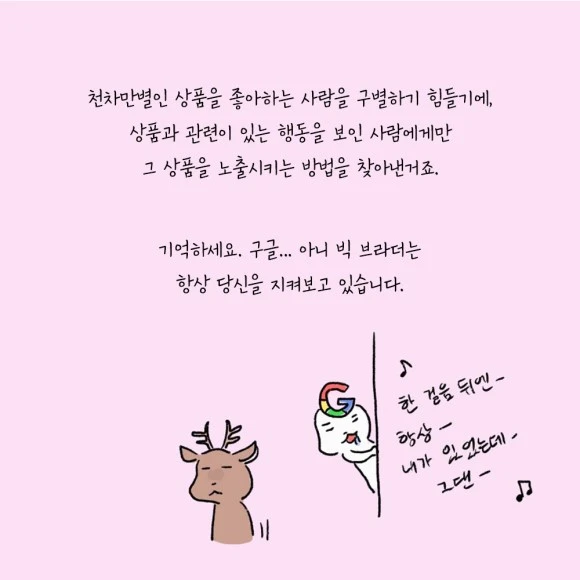 천차만별인 상품을 좋아하는 사람을 구별하기 힘들기에,
상품과 관련이 있는 행동을 보인 사람에게만
그 상품을 노출시키는 방법을 찾아낸거죠.
기억하세요. 구글... 아니 빅 브라더는
항상 당신을 지켜보고 있습니다.
G
♪
한 걸음 뒤엔-
항상-
내가 있었는데-
그댄-
♫